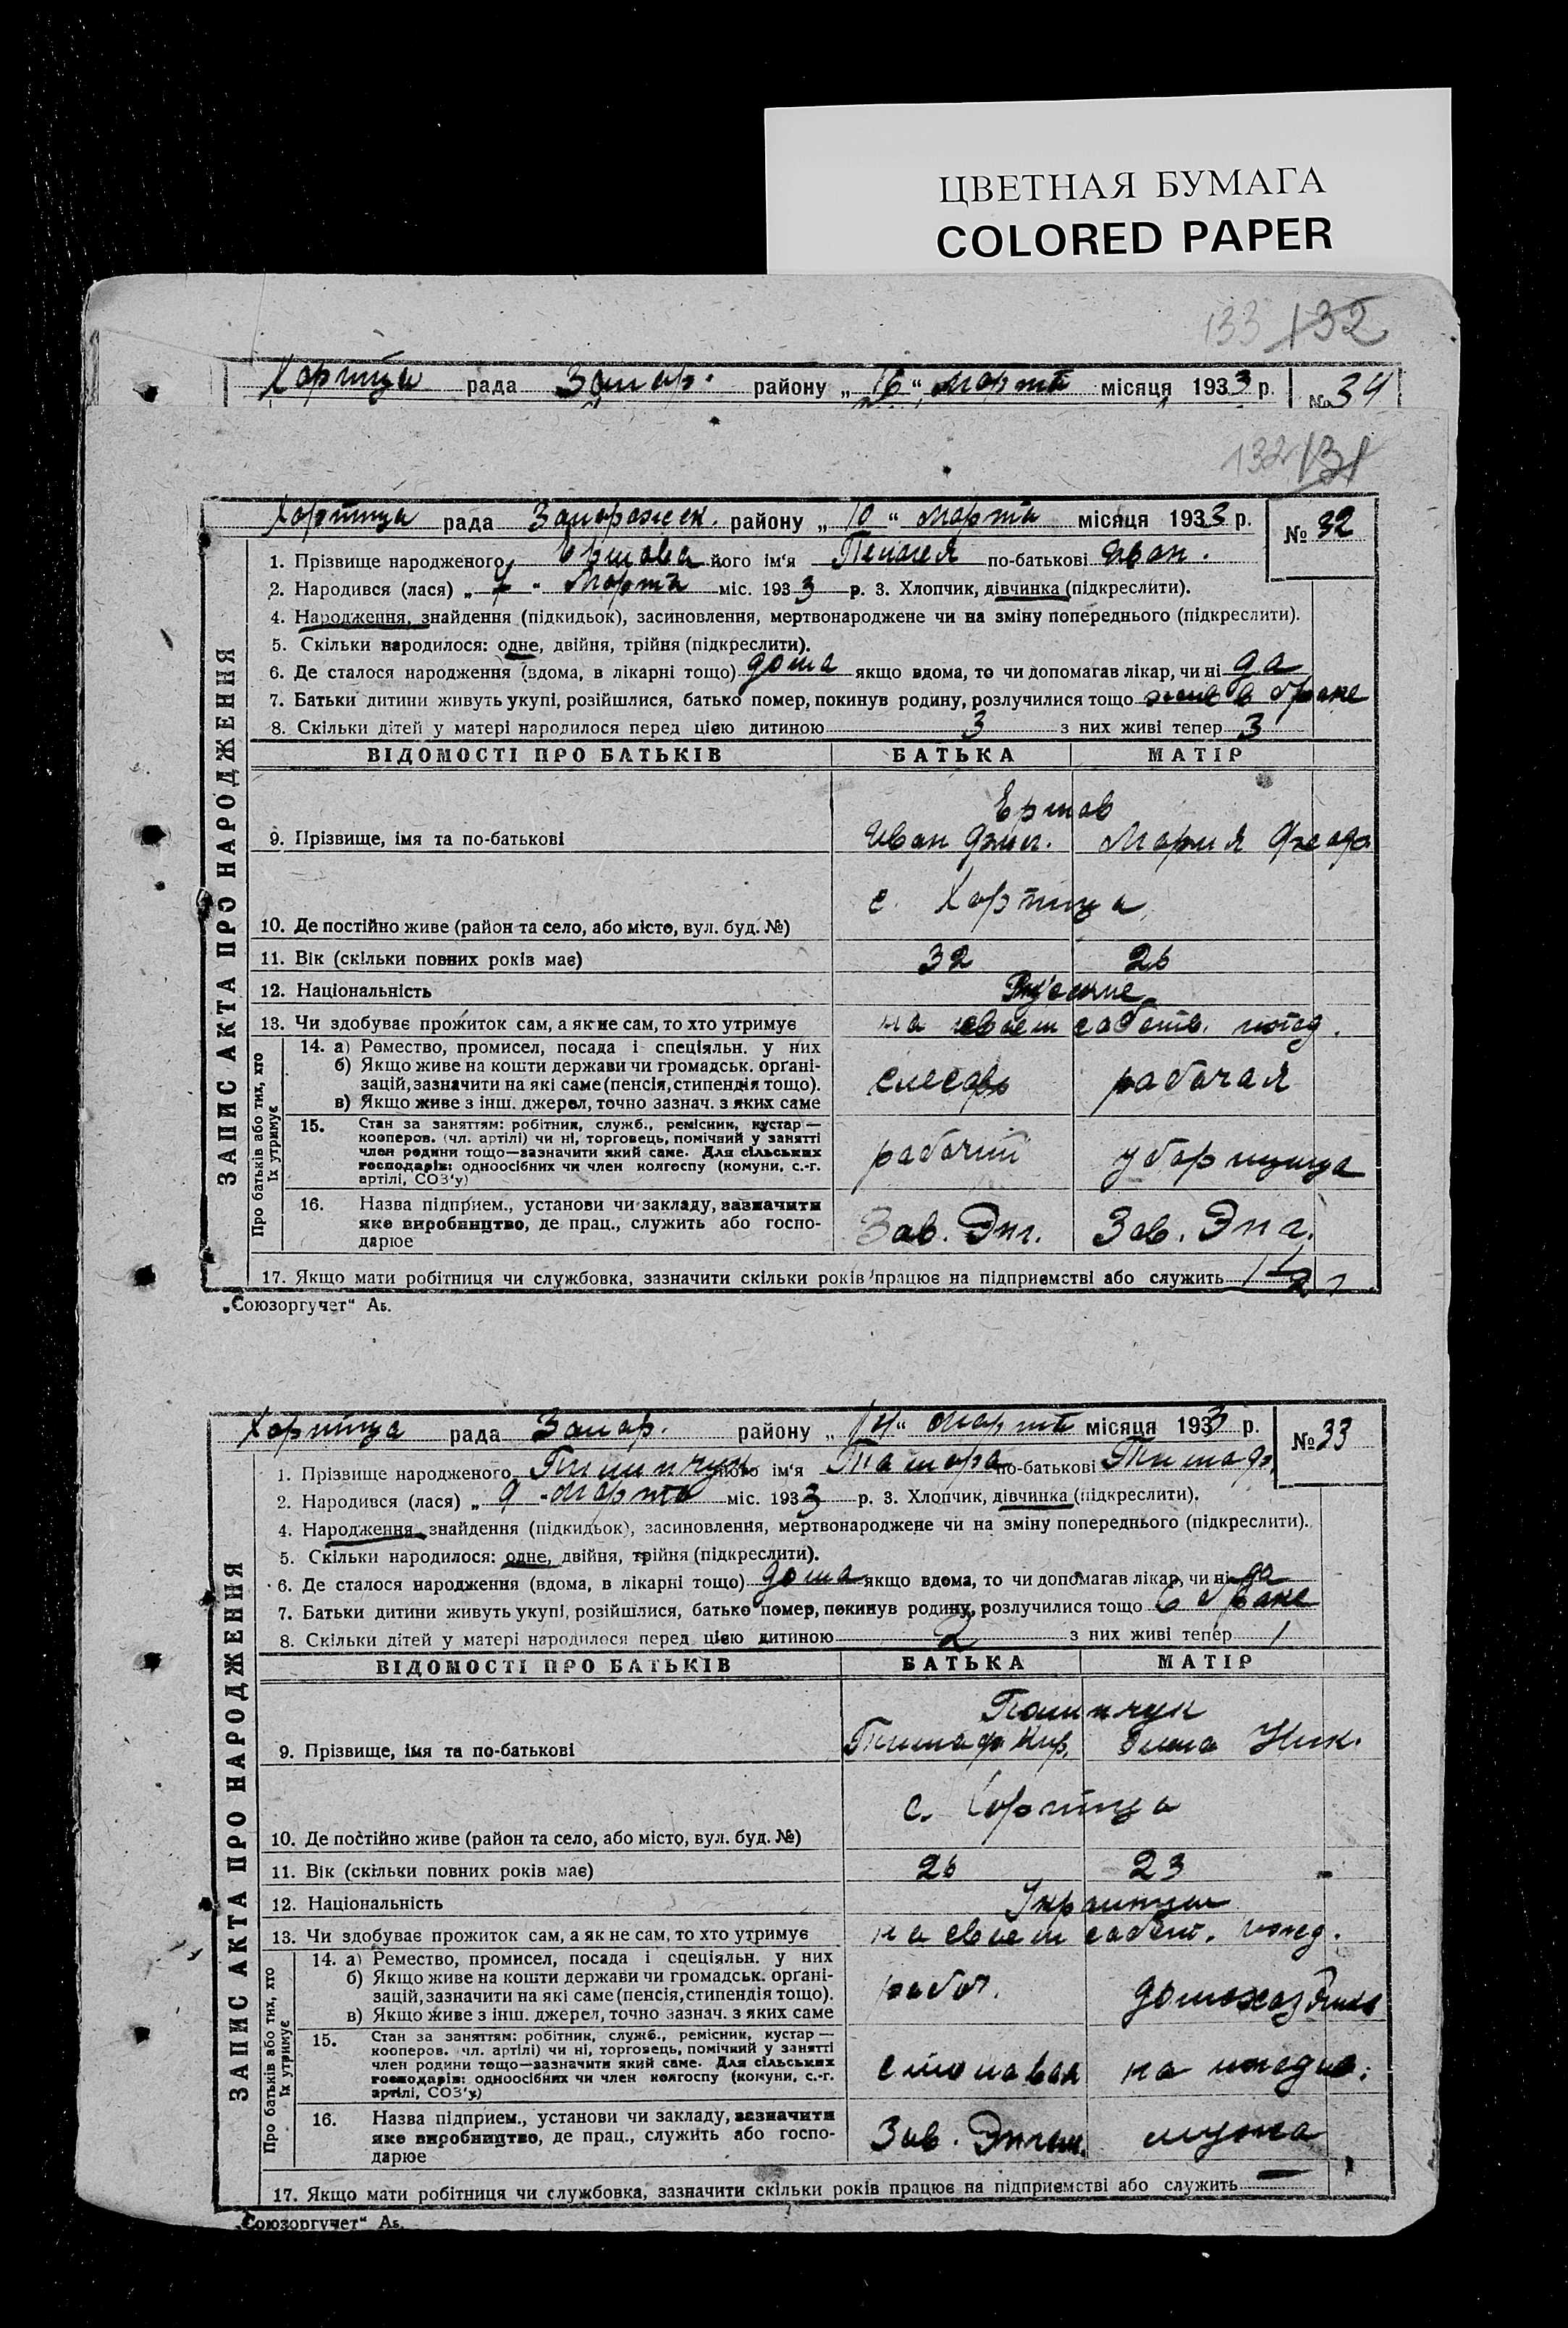 ЦВЕТНАЯ БУМАГА
COLORED PAPER
133 132
Хортица рада Запор. району „16“ марта місяця 1933 р. № 34
132 131
Хортица рада Запорожск. району „10“ марта місяця 1933 р. № 32
1. Прізвище народженого Ершова його ім'я Пелагея по-батькові Иван.
2. Народився (лася) „ “ марта міс. 1933 р. 3. Хлопчик, дівчинка (підкреслити).
4. Народження, знайдення (підкидьок), засиновлення, мертвонароджене чи на зміну попереднього (підкреслити).
5. Скільки народилося: одне, двійня, трійня (підкреслити).
6. Де сталося народження (вдома, в лікарні тощо) дома якщо вдома, то чи допомагав лікар, чи ні да
7. Батьки дитини живуть укупі, розійшлися, батько помер, покинув родину, розлучилися тощо жив в браке
8. Скільки дітей у матері народилося перед цією дитиною 3 з них живі тепер 3
ЗАПИС АКТА ПРО НАРОДЖЕННЯ
ВІДОМОСТІ ПРО БАТЬКІВ БАТЬКА МАТІР
Ершов
9. Прізвище, імя та по-батькові Иван Мария Феодо
с. Хортица
10. Де постійно живе (район та село, або місто, вул. буд. №)
11. Вік (скільки повних років має) 32 26
12. Національність Русские
13. Чи здобуває прожиток сам, а як не сам, то хто утримує на своем собств. ижд.
Про батьків або тих, хто їх утримує
14. а) Ремество, промисел, посада і спеціяльн. у них
б) Якщо живе на кошти держави чи громадськ. органі-
зацій, зазначити на які саме (пенсія, стипендія тощо). слесарь рабочая
в) Якщо живе з інш. джерел, точно зазнач. з яких саме
15. Стан за заняттям: робітник, служб., ремісник, кустар —
кооперов. (чл. артілі) чи ні, торговець, помічний у занятті
член родини тощо—зазначити який саме. Для сільських рабочий уборщица
господарів: одноосібних чи член колгоспу (комуни, с.-г.
артілі, СОЗ'у)
16. Назва підприєм., установи чи закладу, зазначити
яке виробництво, де прац., служить або госпо- Зав. Энг. Зав. Энг.
дарює
17. Якщо мати робітниця чи службовка, зазначити скільки років працює на підприємстві або служить 1 1/2 г
„Союзоргучет“ Аб.
Хортица рада Запор. району „14“ марта місяця 1933 р. № 33
1. Прізвище народженого його ім'я Тамара по-батькові Тимоф.
2. Народився (лася) „9“ марта міс. 1933 р. 3. Хлопчик, дівчинка (підкреслити).
4. Народження, знайдення (підкидьок), засиновлення, мертвонароджене чи на зміну попереднього (підкреслити).
5. Скільки народилося: одне, двійня, трійня (підкреслити).
6. Де сталося народження (вдома, в лікарні тощо) дома якщо вдома, то чи допомагав лікар, чи ні да
7. Батьки дитини живуть укупі, розійшлися, батько помер, покинув родину, розлучилися тощо в браке
8. Скільки дітей у матері народилося перед цією дитиною 2 з них живі тепер 1
ЗАПИС АКТА ПРО НАРОДЖЕННЯ
ВІДОМОСТІ ПРО БАТЬКІВ БАТЬКА МАТІР
9. Прізвище, імя та по-батькові Тимоф Кир. Елена Ник.
с. Хортица
10. Де постійно живе (район та село, або місто, вул. буд. №)
11. Вік (скільки повних років має) 26 23
12. Національність Украинцы
13. Чи здобуває прожиток сам, а як не сам, то хто утримує на своем собст. ижд.
Про батьків або тих, хто їх утримує
14. а) Ремество, промисел, посада і спеціяльн. у них
б) Якщо живе на кошти держави чи громадськ. органі-
зацій, зазначити на які саме (пенсія, стипендія тощо). рабоч. домохозяйка
в) Якщо живе з інш. джерел, точно зазнач. з яких саме
15. Стан за заняттям: робітник, служб., ремісник, кустар —
кооперов. чл. артілі) чи ні, торговець, помічний у занятті
член родини тощо—зазначити який саме. Для сільських на иждив.
господарів: одноосібних чи член колгоспу (комуни, с.-г.
артілі, СОЗ'у)
16. Назва підприєм., установи чи закладу, зазначити
яке виробництво, де прац., служить або госпо- Зав. Энгель. мужа
дарює
17. Якщо мати робітниця чи службовка, зазначити скільки років працює на підприємстві або служить —
„Союзоргучет“ Аб.